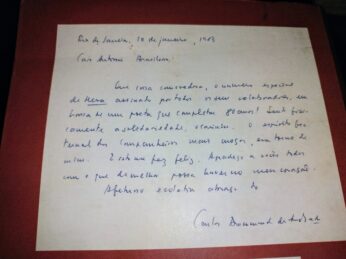 Rio de Janeiro, 12 de janeiro, 1983
Caro Antonio Brasileiro:
Que coisa comovedora, o número especial
de Hera assinado por todos os seus colaboradores, em
louvor de um poeta que completou 80 anos! Senti
a solidariedade, o carinho, o espírito
fraternal dos companheiros mais moços, em torno de
mim. E isto me faz feliz. Agradeço a vocês todos
com o que de melhor possa haver no meu coração.
Afetuoso e abraço do
Carlos Drummond de Andrade